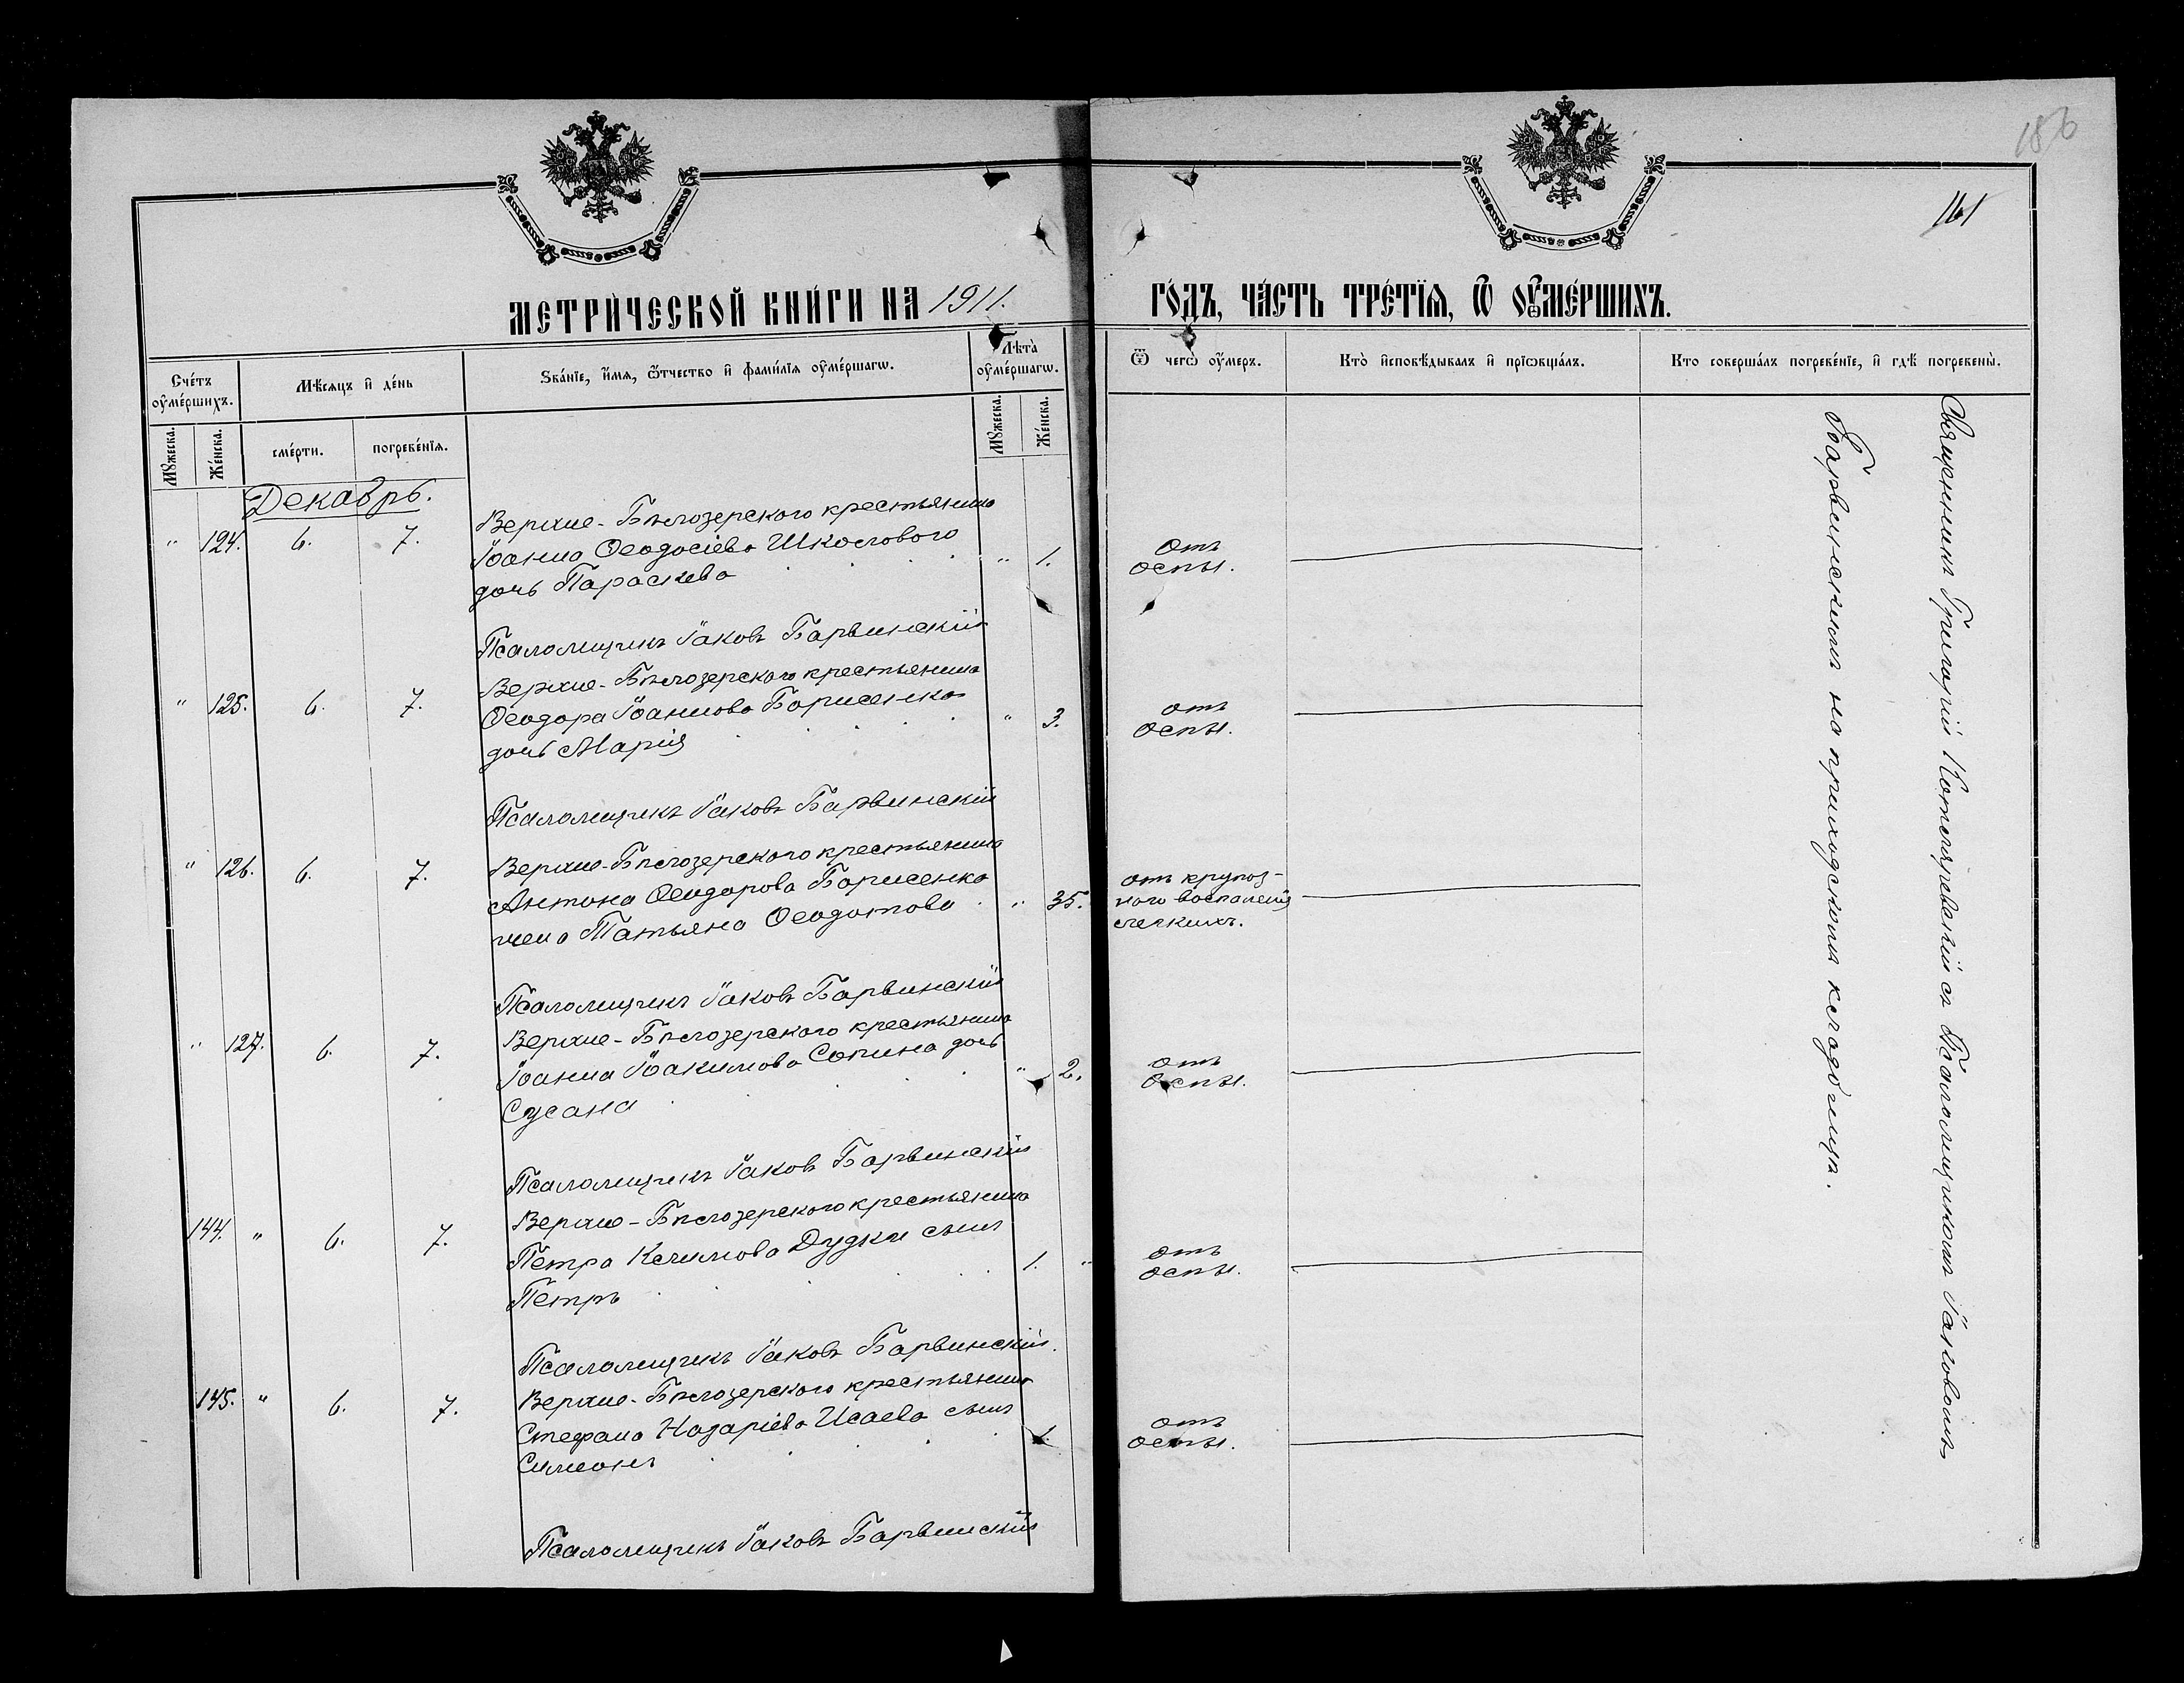 186
161
МЕТРИЧЕСКОЙ КНИГИ НА 1911.
ГОДЪ, ЧАСТЬ ТРЕТІЯ, Ѿ ОУМЕРШИХЪ.
Счетъ оумершихъ.
Мѣсяцъ и день
Званіе, имя, ѿтчество и фамилія оумершагѡ.
Лѣта оумершагѡ.
Ѿ чегѡ оумеръ.
Кто исповѣдывалъ и пріѡбщалъ.
Кто совершалъ погребеніе, и гдѣ погребены.
Мужеска.
Женска.
смерти.
погребенія.
Мужеска.
Женска.
Декабрь.
" 124. 6. 7. Верхне-Бѣлозерского крестьянина
Іоанна Ѳеодосіева Школового
дочь Параскева " 1. Отъ оспы.
Псаломщикъ Іаковъ Барвинскій
" 125. 6. 7. Верхне-Бѣлозерского крестьянина
Ѳеодора Іоаннова Борисенко
дочь Марія " 3. отъ оспы.
Псаломщикъ Іаковъ Барвинскій
" 126. 6. 7. Верхне-Бѣлозерского крестьянина
Антона Ѳеодорова Борисенко
жена Татьяна Ѳеодотова " 35. отъ крупоз-
ного воспаленія
легкихъ.
Псаломщикъ Іаковъ Барвинскій
" 127. 6. 7. Верхне-Бѣлозерского крестьянина
Іоанна Іоакимова Сопина дочь
Сусана " 2. отъ оспы.
Псаломщикъ Іаковъ Барвинскій
144. " 6. 7. Верхне-Бѣлозерского крестьянина
Петра Климова Дудки сынъ
Петръ 1. " отъ оспы.
Псаломщикъ Іаковъ Барвинскій.
145. " 6. 7. Верхне-Бѣлозерского крестьянина
Стефана Назаріева Исаева сынъ
Симеонъ 1. отъ оспы.
Псаломщикъ Іаковъ Барвинскій
Священникъ Григорій Котляревскій съ Псаломщикомъ Іаковомъ
Барвинскимъ на приходскомъ кладбищѣ.